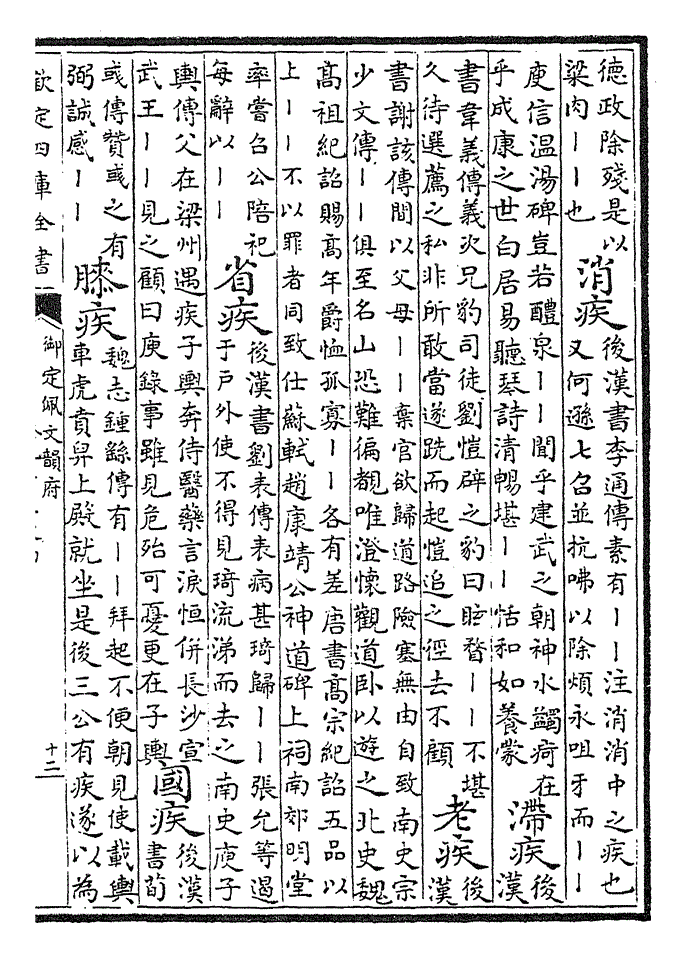 德政除殘是以
粱肉丨丨也
消疾
後漢書李通傳素有丨丨注消消中之疾也
又何遜七召並抗咈以除煩永咀牙而丨丨
庾信温湯碑豈若醴泉丨丨聞乎建武之朝神水蠲疴在
乎成康之世白居易聽琴詩清暢堪丨丨恬和如養蒙
滯疾
後
漢
書韋義傳義次兄豹司徒劉愷辟之豹曰眩瞀丨丨不堪
久待選薦之私非所敢當遂跣而起愷追之徑去不顧
老疾
後
漢
書謝該傳間以父母丨丨棄官欲歸道路險塞無由自致南史宗
少文傳丨丨俱至名山恐難徧覩唯澄懷觀道卧以遊之北史魏
高祖紀詔賜高年爵恤孤寡丨丨各有差唐書高宗紀詔五品以
上丨丨不以罪者同致仕蘇軾趙康靖公神道碑上祠南郊明堂
率嘗召公陪祀
每辭以丨丨
省疾
後漢書劉表傳表病甚琦歸丨丨張允等遏
于戶外使不得見琦流涕而去之南史庾子
輿傳父在梁州遇疾子輿奔侍醫藥言淚恒併長沙宣
武王丨丨見之顧曰庾錄事雖見危殆可憂更在子輿
國疾
後漢
書荀
彧傳贊彧之有
弼誠感丨丨
膝疾
魏志鍾繇傳有丨丨拜起不便朝見使載輿
車虎賁舁上殿就坐是後三公有疾遂以為
欽定四庫全書
御定佩文韻府
十二